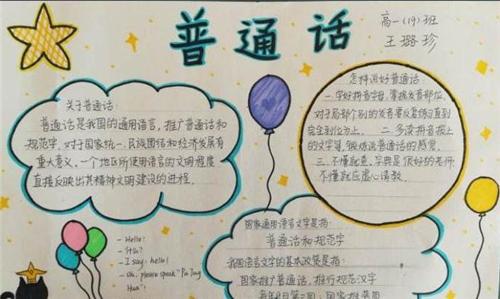 普通话
高一(19)班
王璐珍
关于普通话:
普通话是我国的通用语言,推广普通话和
规范字,对于国家统一、民族团结和经济发展有
重大意义。一个地区所使用语言的文明程度
直接反映出其精神文明建设的进程。
怎样说好普通话:
一.学好拼音字母,掌握发音部位,
对于局部个别的发音要反复修正直到
完全到位为止。 二.多读拼音报上
的文字等,锻炼说普通话的感觉。
三.不懂就查,字典是很好的老师
不懂就应虚心请教。
- Hello!
- I say: hello!
- oh, please speak "Pu Tong
Hua"!
国家通用语言文字是指:
普通话和规范字
我国语言文字的基本政策是指:
国家推广普通话,推行规范汉字